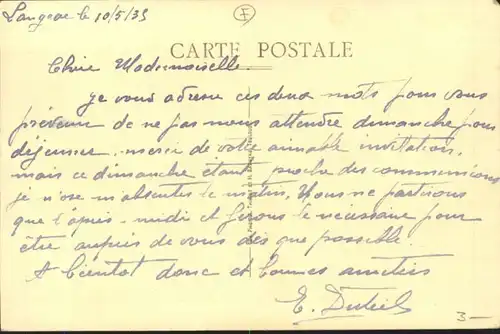 Langeac le 10/5/39
CARTE POSTALE
Chère Mademoiselle.
Je vous adresse ces deux mots pour vous
prévenir de ne pas nous attendre dimanche pour
déjeuner. merci de votre aimable invitation,
mais ce dimanche étant proche des communions
je n'ose m'absenter le matin. Nous ne partirons
que l'après-midi et ferons le nécessaire pour
être auprès de vous dès que possible.
A bientôt donc et bonnes amitiés
E.
3-